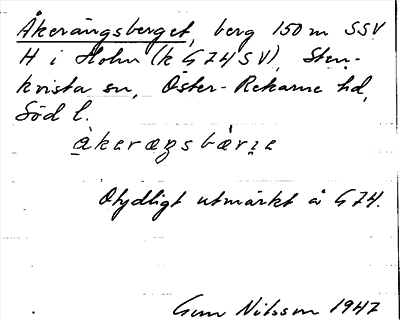 Åkerängsberget, berg 150 m SSV
H i Holm (k G 74 S V), Sten-
kvista sn, Öster-Rekarne hd,
Söd l.
åkeræŋsbärje
Otydligt utmärkt å G 74.
Gun Nilsson 1947